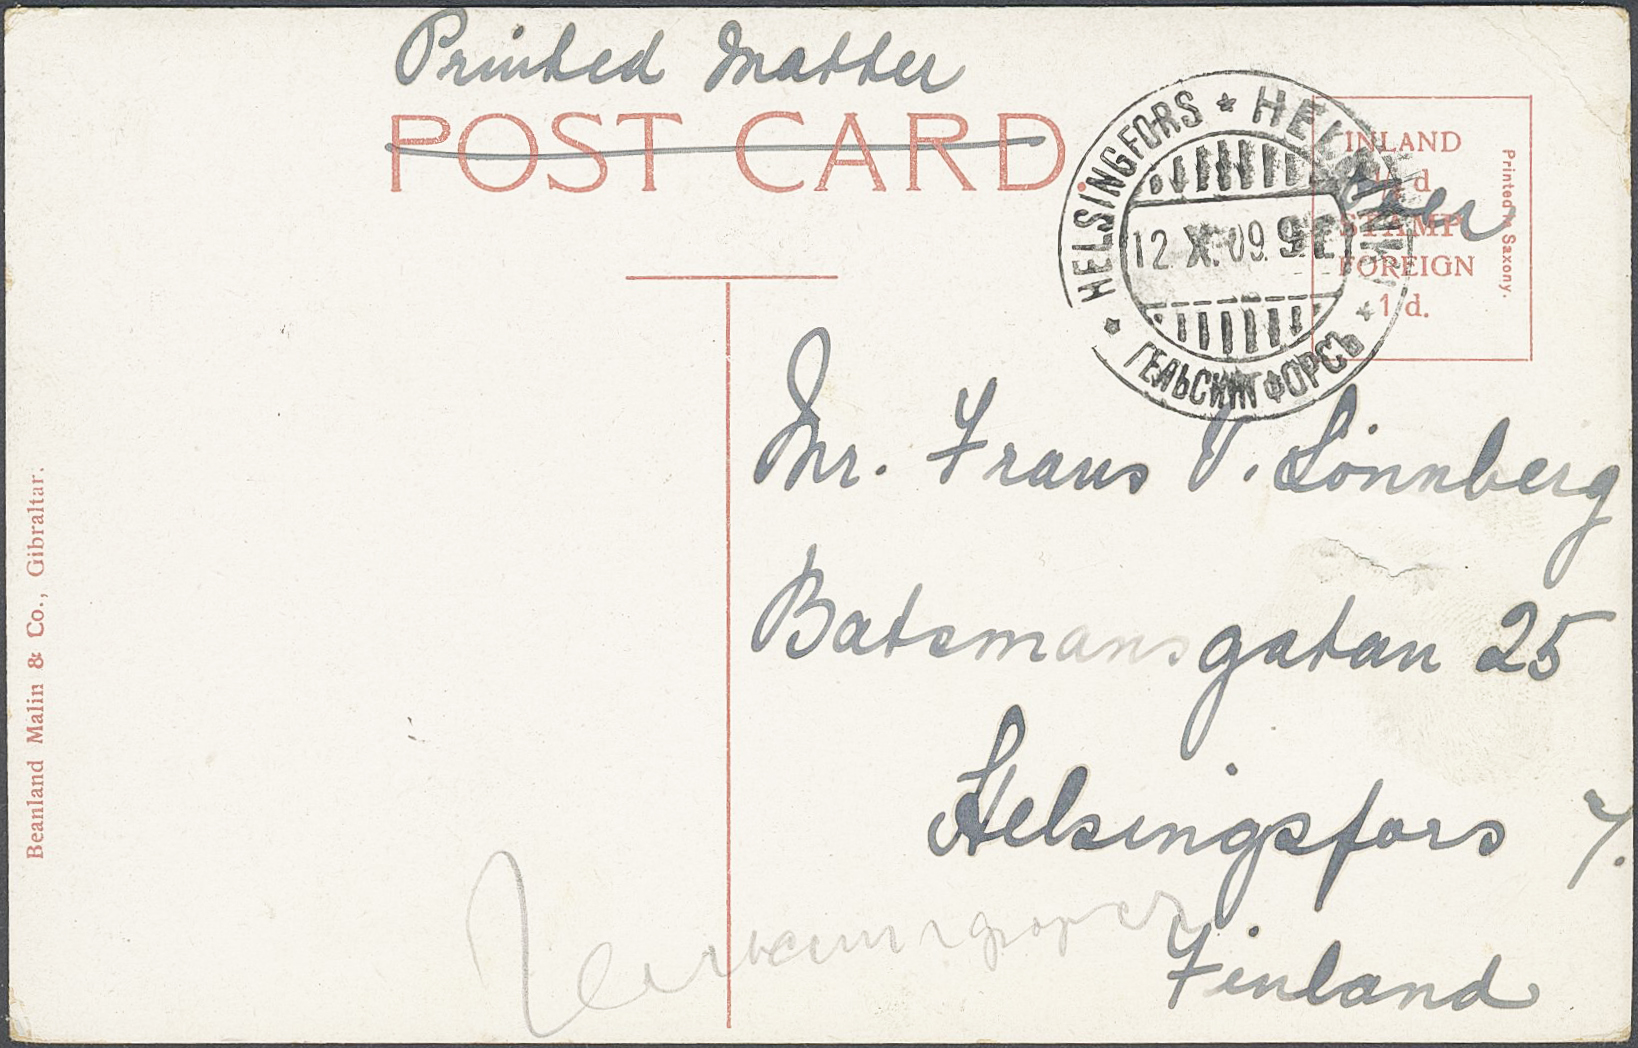 Printed Matter
POST CARD
HELSINGFORS * HELSINKI * ГЕЛЬСИНГФОРСЪ *
12.X.09. 9 E
INLAND
½ d
STAMP
FOREIGN
1 d.
Printed in Saxony.
Mr. Frans V. Lönnberg
Batsmansgatan 25
Helsingfors 7.
Finland
Beanland Malin & Co., Gibraltar.